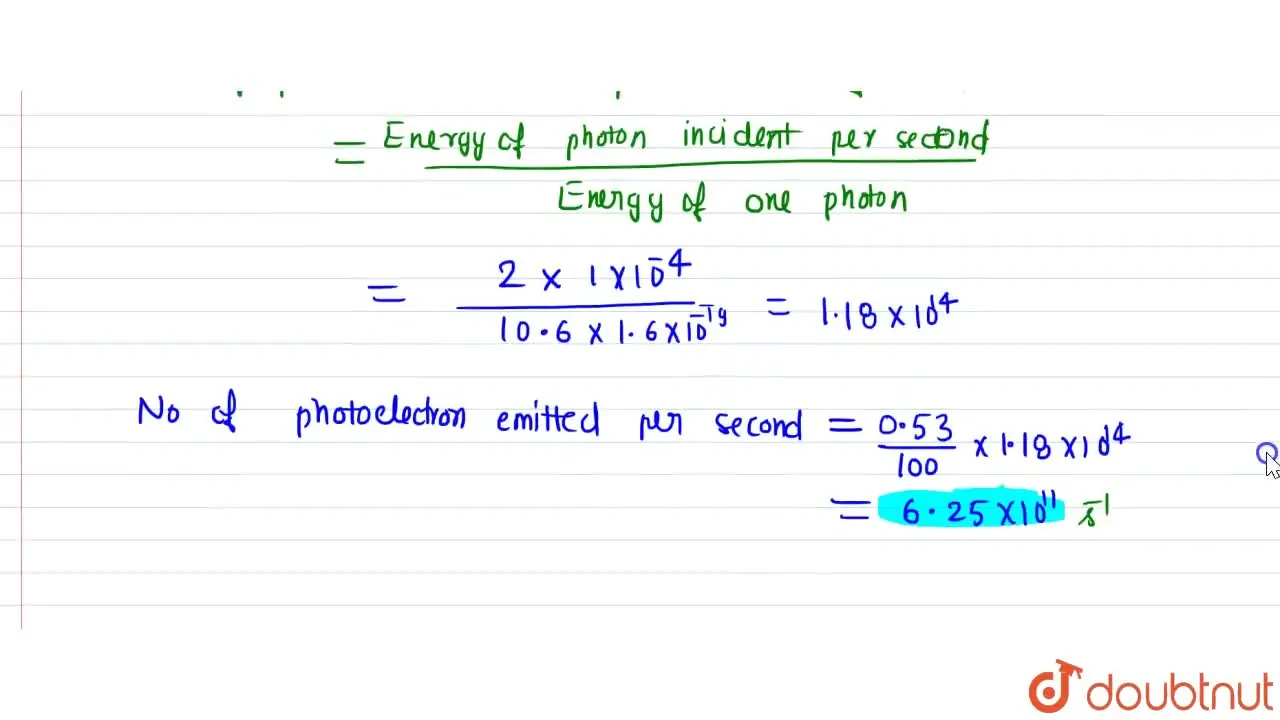 = Energy of photon incident per second
Energy of one photon
= 2 × 1×10⁻⁴
10.6 × 1.6×10⁻¹⁹ = 1.18×10¹⁴
No of photoelectron emitted per second = 0.53/100 × 1.18×10¹⁴
= 6.25×10¹¹ s⁻¹
doubtnut